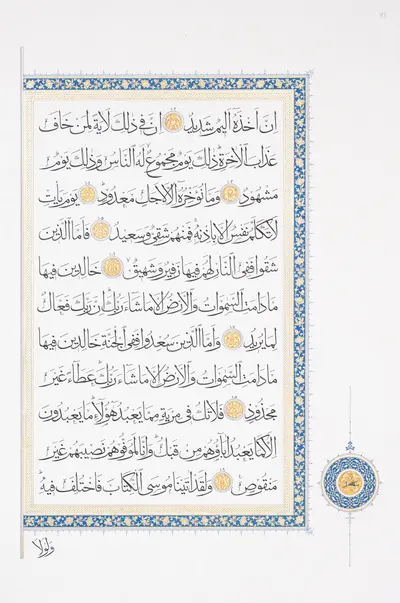 ان اخذه اليم شديد ان فى ذلك لاية لمن خاف
عذاب الاخرة ذلك يوم مجموع له الناس وذلك يوم
مشهود وما نؤخره الا لاجل معدود يوم يات
لا تكلم نفس الا باذنه فمنهم شقى وسعيد فاما الذين
شقوا ففى النار لهم فيها زفير وشهيق خالدين فيها
ما دامت السموات والارض الا ما شاء ربك ان ربك فعال
لما يريد واما الذين سعدوا ففى الجنة خالدين فيها
ما دامت السموات والارض الا ما شاء ربك عطاء غير
مجذوذ فلا تك فى مرية مما يعبد هؤلاء ما يعبدون
الا كما يعبد اباؤهم من قبل وانا لموفوهم نصيبهم غير
منقوص ولقد اتينا موسى الكتاب فاختلف فيه
ولولا